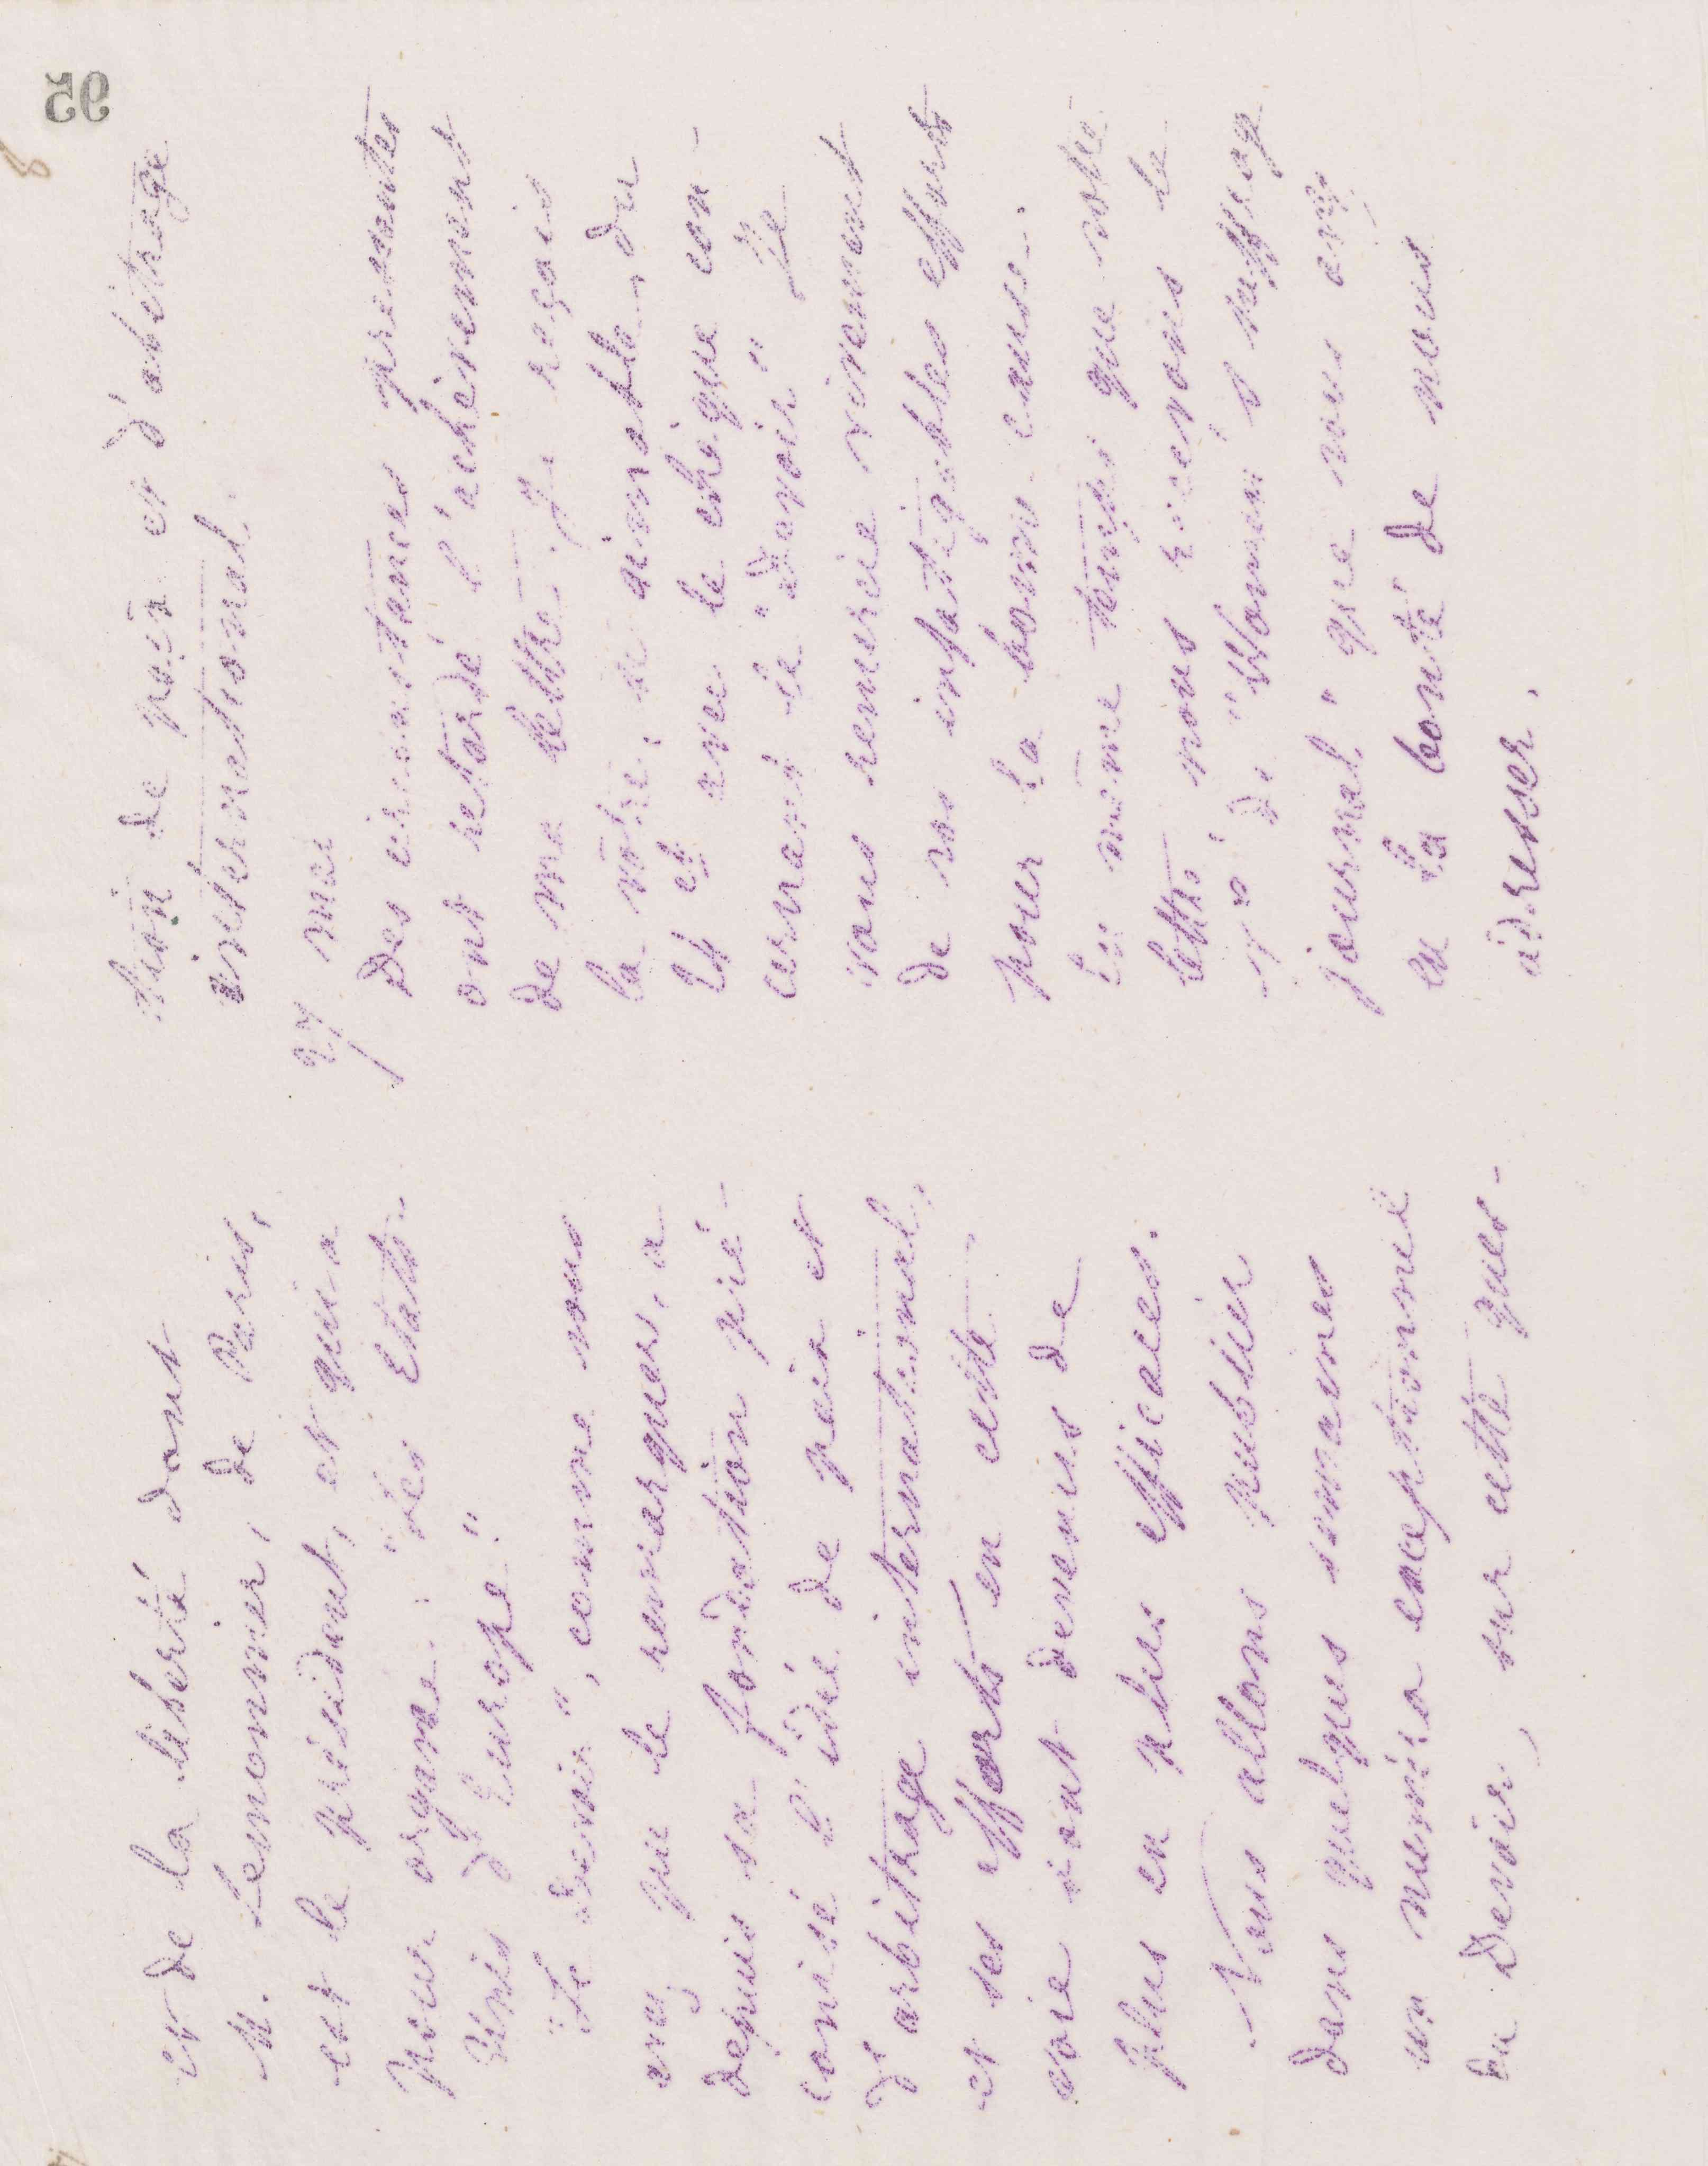 et de la liberté dont
M. Lemonnier, de Paris,
est le président, et qui a
pour organe: "les Etats-
Unis d'Europe."
"Le devoir", comme vous
avez pu le remarquer, a
depuis sa fondation pré-
conisé l'idée de paix et
d'arbitrage international,
et ses efforts en cette
voie sont devenus de
plus en plus efficaces.
Nous allons publier
dans quelques semaines
un numéro exceptionnel
du Devoir, sur cette ques-
tion de paix et d'abitrage
international.
27 mai
Des circonstances pressantes
ont retardé l'achèvement
de ma lettre. Je reçois
la vôtre, si aimable, du
24 et avec le chèque con-
cernant le "devoir" Je
vous remercie vivement
de vos infatigables efforts
pour la bonne cause.
En même temps que votre
lettre, nous recevons le
n° de "Woman's suffrage
journal" que vous avez
eu la bonté de nous
adresser.
95